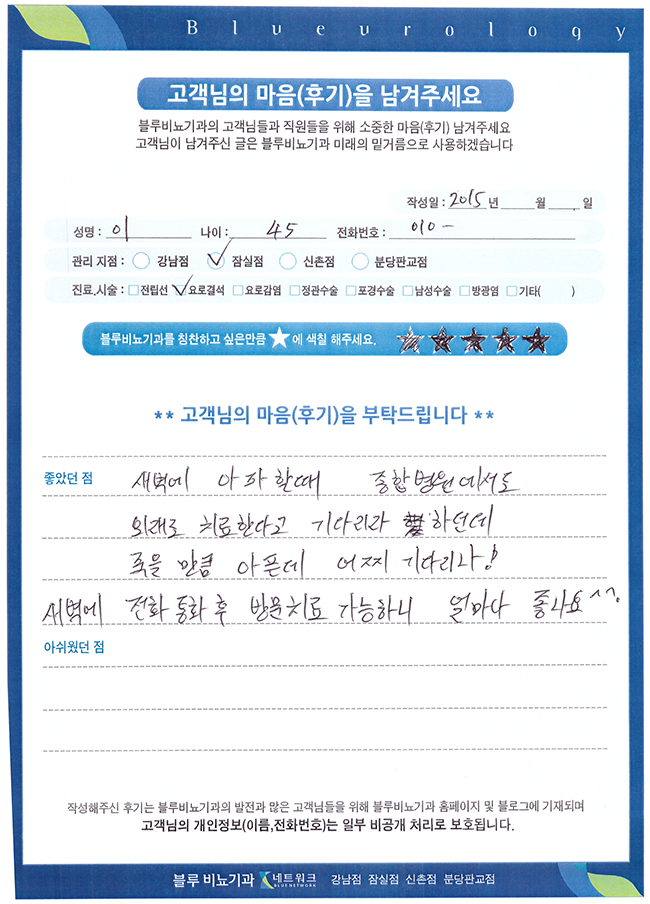 Blueurology
고객님의 마음(후기)을 남겨주세요
블루비뇨기과의 고객님들과 직원들을 위해 소중한 마음(후기) 남겨주세요
고객님이 남겨주신 글은 블루비뇨기과 미래의 밑거름으로 사용하겠습니다
작성일 : 2015 년 월 일
성명 : 이 나이 : 45 전화번호 : 010 -
관리 지점 : 강남점 잠실점 신촌점 분당판교점
진료,시술 : 전립선 요로결석 요로감염 정관수술 포경수술 남성수술 방광염 기타( )
블루비뇨기과를 칭찬하고 싶은만큼 ★에 색칠 해주세요.
** 고객님의 마음(후기)을 부탁드립니다 **
좋았던 점 새벽에 아파할때 종합병원에서도
외래로 치료한다고 기다리라 하던데
죽을 만큼 아픈데 어찌 기다리나!
새벽에 전화통화 후 방문치료 가능하니 얼마나 좋나요 ^^.
아쉬웠던 점
작성해주신 후기는 블루비뇨기과의 발전과 많은 고객님들을 위해 블루비뇨기과 홈페이지 및 블로그에 기재되며
고객님의 개인정보(이름,전화번호)는 일부 비공개 처리로 보호됩니다.
블루 비뇨기과 네트워크 BLUENETWORK 강남점 잠실점 신촌점 분당판교점